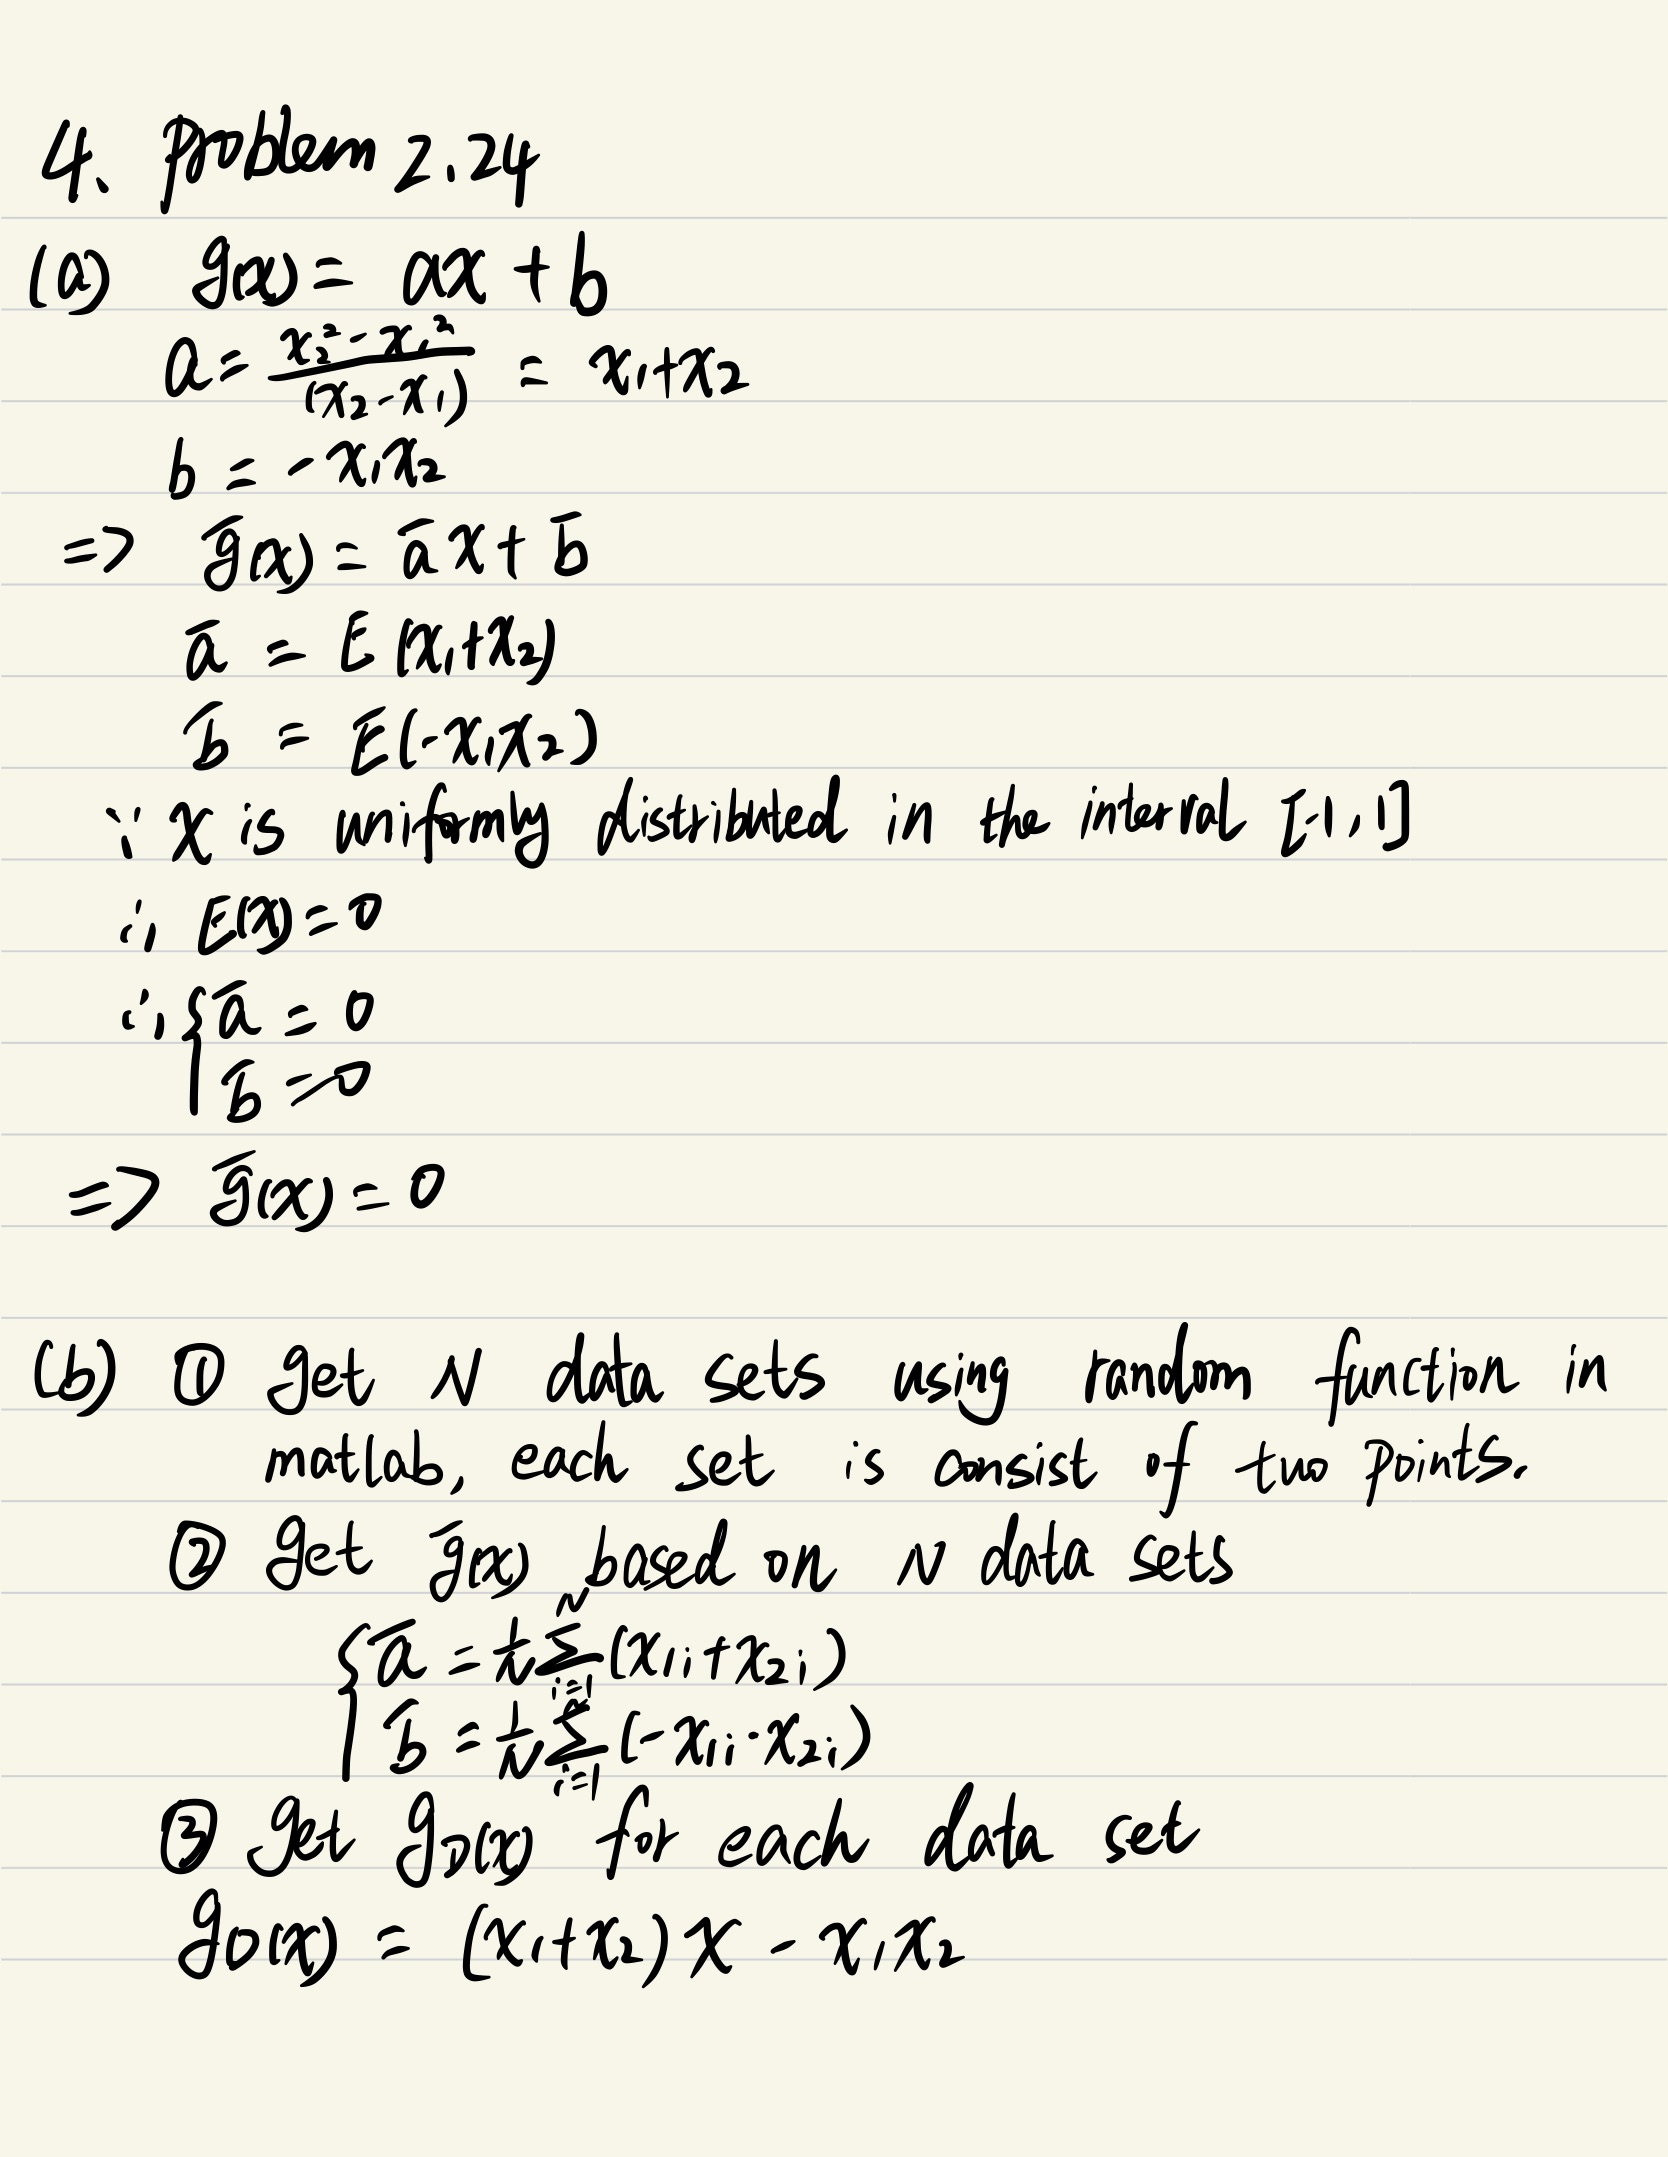 4、Problem 2.24
(a) g(x) = ax + b
a = \frac{x_2^2 - x_1^2}{(x_2 - x_1)} = x_1 + x_2
b = -x_1x_2
=> \bar{g}(x) = \bar{a}x + \bar{b}
\bar{a} = E(x_1+x_2)
\bar{b} = E(-x_1x_2)
∵ x is uniformly distributed in the interval [-1,1]
∴ E(x) = 0
∴ { \bar{a} = 0
\bar{b} = 0
=> \bar{g}(x) = 0
(b) ① get N data sets using random function in
matlab, each set is consist of two points.
② get \bar{g}(x) based on N data sets
{ \bar{a} = \frac{1}{N} \sum_{i=1}^{N} (x_{1i} + x_{2i})
\bar{b} = \frac{1}{N} \sum_{i=1}^{N} (-x_{1i} \cdot x_{2i})
③ get g_D(x) for each data set
g_D(x) = (x_1+x_2)x - x_1x_2